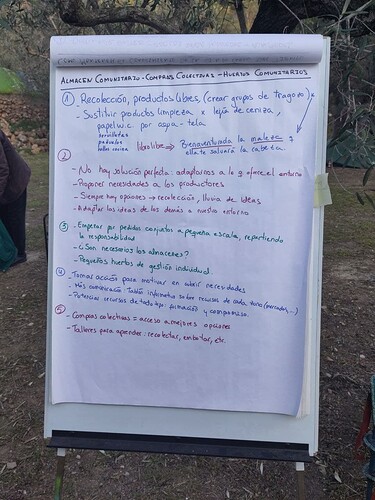 ALMACEN COMUNITARIO - COMPRAS COLECTIVAS - HUERTOS COMUNITARIOS
1 Recolección, productos libres, (crear grupos de trabajo)
- Sustituir productos limpieza x lejía de ceniza,
papel w.c. por aspa-tela
servilletas
pañuelos
rollos cocina
libro libre → Bienaventurada la maleza q
ella te salvará la cabeza
2
- No hay solución perfecta: adaptarnos a lo q ofrece el entorno
- Proponer necesidades a los productores
- Siempre hay opciones → recolección, lluvia de ideas
- Adaptar las ideas de los demás a nuestro entorno
3 - Empezar por pedidos conjuntos a pequeña escala, repartiendo
la responsabilidad
- ¿Son necesarios los almacenes?
- Pequeños huertos de gestión individual
4 - Tomar acción para motivar en cubrir necesidades
- Más comunicación: Tablón informativo sobre recursos de cada zona (mercados,...)
- Potenciar recursos de todo tipo: formación y compromiso.
5
- Compras colectivas = acceso a mejores opciones
- Talleres para aprender: recolectar, embotar, etc.